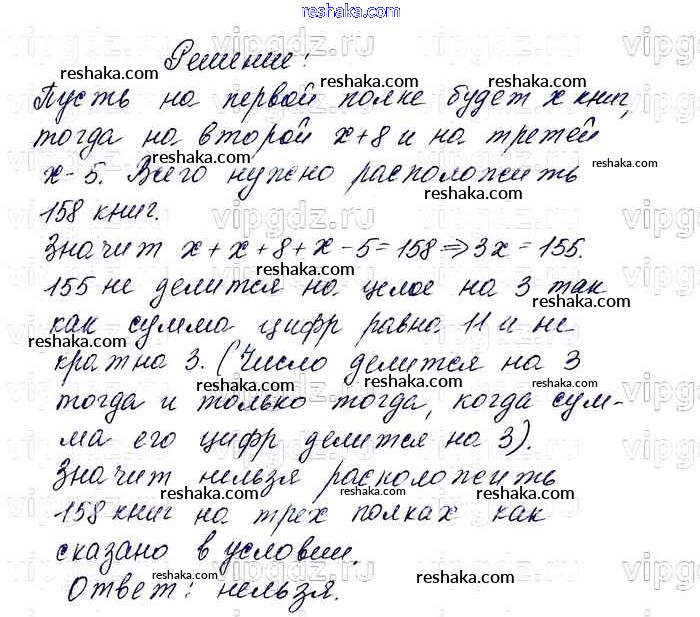 reshaka.com
Решение:
Пусть на первой полке будет x книг,
тогда на второй x+8 и на третей
x-5. Всего нужно расположить
158 книг.
Значит x+x+8+x-5=158⇒3x=155.
155 не делится на целое на 3 так
как сумма цифр равна 11 и не
кратна 3. (Число делится на 3
тогда и только тогда, когда сум-
ма его цифр делится на 3).
Значит нельзя расположить
158 книг на трех полках как
сказано в условии.
Ответ: нельзя.